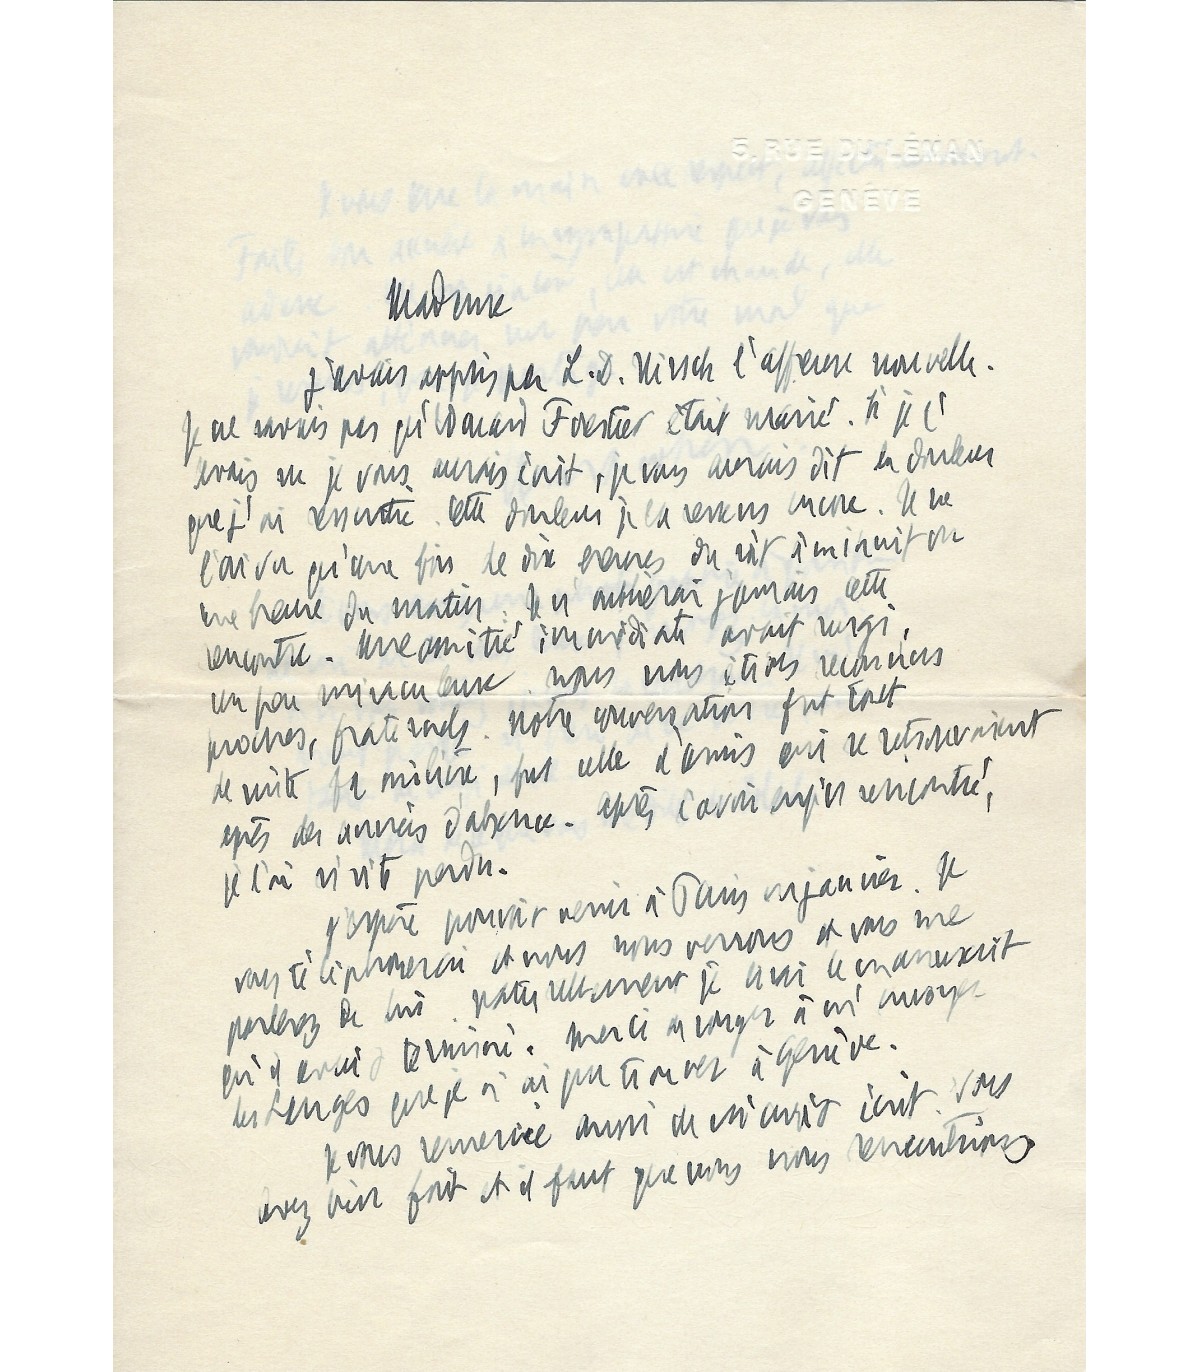 5, RUE DU LÉMAN
GENÈVE
Madame
j'avais appris par L.-D. Hirsch l'affreuse nouvelle.
Je ne savais pas qu'Edouard Forestier était marié. Si je l'
avais su je vous aurais écrit, je vous aurais dit la douleur
que j'ai ressentie. Cette douleur je la ressens encore. Je ne
l'ai vu qu'une fois de dix heures du soir à minuit ou
une heure du matin. Je n'oublierai jamais cette
rencontre. Une amitié immédiate avait surgi,
un peu miraculeuse. Nous nous étions reconnus
proches, fraternels. Notre conversation fut tout
de suite familière, fut celle d'amis qui se retrouvaient
après des années d'absence. Après l'avoir enfin rencontré,
je l'ai si vite perdu.
J'espère pouvoir venir à Paris en janvier. Je
vous téléphonerai et nous nous verrons et vous me
parlerez de lui. Naturellement je lirai le manuscrit
qu'il avait terminé. Merci de songer à m'envoyer
les Songes que je n'ai pu trouver à Genève.
Je vous remercie aussi de m'avoir écrit. Vous
avez bien fait et il faut que nous nous rencontrions